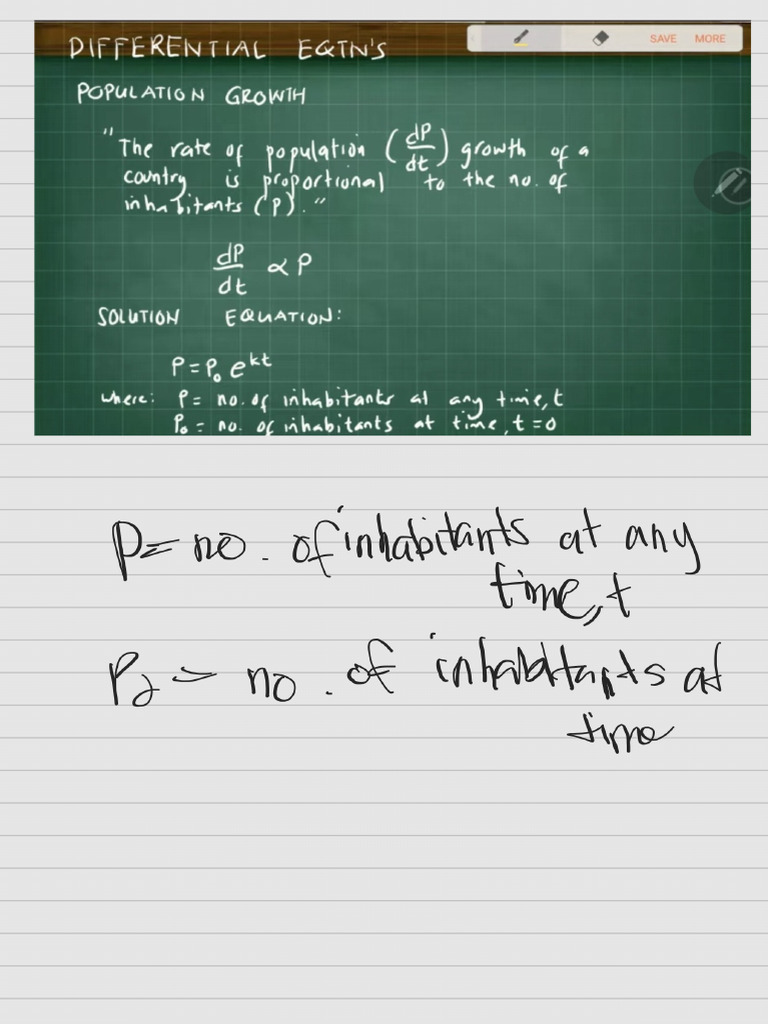 DIFFERENTIAL EQTN'S
SAVE MORE
POPULATION GROWTH
"The rate of population (dP/dt) growth of a
country is proportional to the no. of
inhabitants (P)."
dP/dt ∝ P
SOLUTION EQUATION:
P = P₀ e^kt
where: P = no. of inhabitants at any time, t
P₀ = no. of inhabitants at time, t = 0
P = no. of inhabitants at any
time, t
P₂ = no. of inhabitants at
time